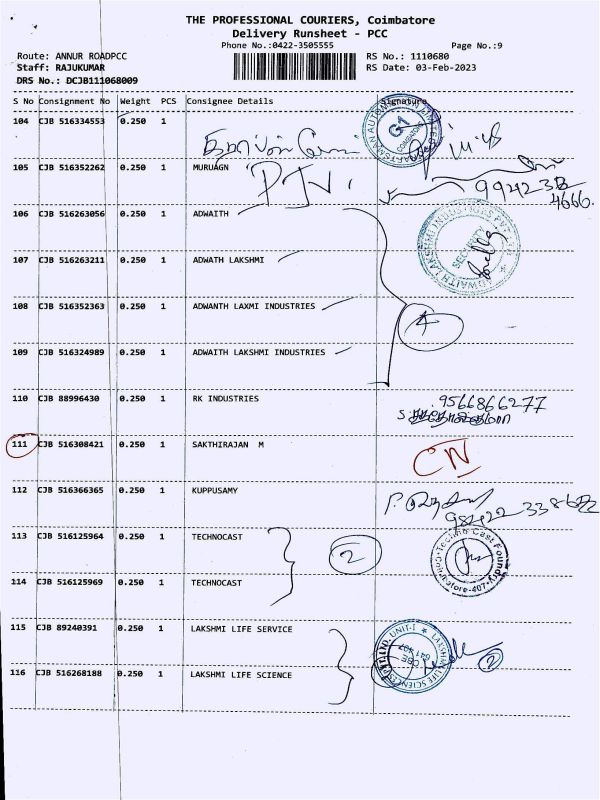 THE PROFESSIONAL COURIERS, Coimbatore
Delivery Runsheet - PCC
Phone No.:0422-3505555 Page No.:9
Route: ANNUR ROADPCC RS No.: 1110680
Staff: RAJUKUMAR RS Date: 03-Feb-2023
DRS No.: DCJB111068009
S No Consignment No Weight PCS Consignee Details Signature
104 CJB 516334553 0.250 1
G1
105 CJB 516352262 0.250 1 MURUAGN
106 CJB 516263056 0.250 1 ADWAITH
ADWAITH LAKSHMI INDUSTRIES PVT. LTD. SECURITY
107 CJB 516263211 0.250 1 ADWATH LAKSHMI
108 CJB 516352363 0.250 1 ADWANTH LAXMI INDUSTRIES
4
109 CJB 516324989 0.250 1 ADWAITH LAKSHMI INDUSTRIES
110 CJB 88996430 0.250 1 RK INDUSTRIES
9566866277
111 CJB 516308421 0.250 1 SAKTHIRAJAN M
CN
112 CJB 516366365 0.250 1 KUPPUSAMY
113 CJB 516125964 0.250 1 TECHNOCAST
2
Techno Cast Foundry Coimbatore-407
114 CJB 516125969 0.250 1 TECHNOCAST
115 CJB 89240391 0.250 1 LAKSHMI LIFE SERVICE
2
116 CJB 516268188 0.250 1 LAKSHMI LIFE SCIENCE